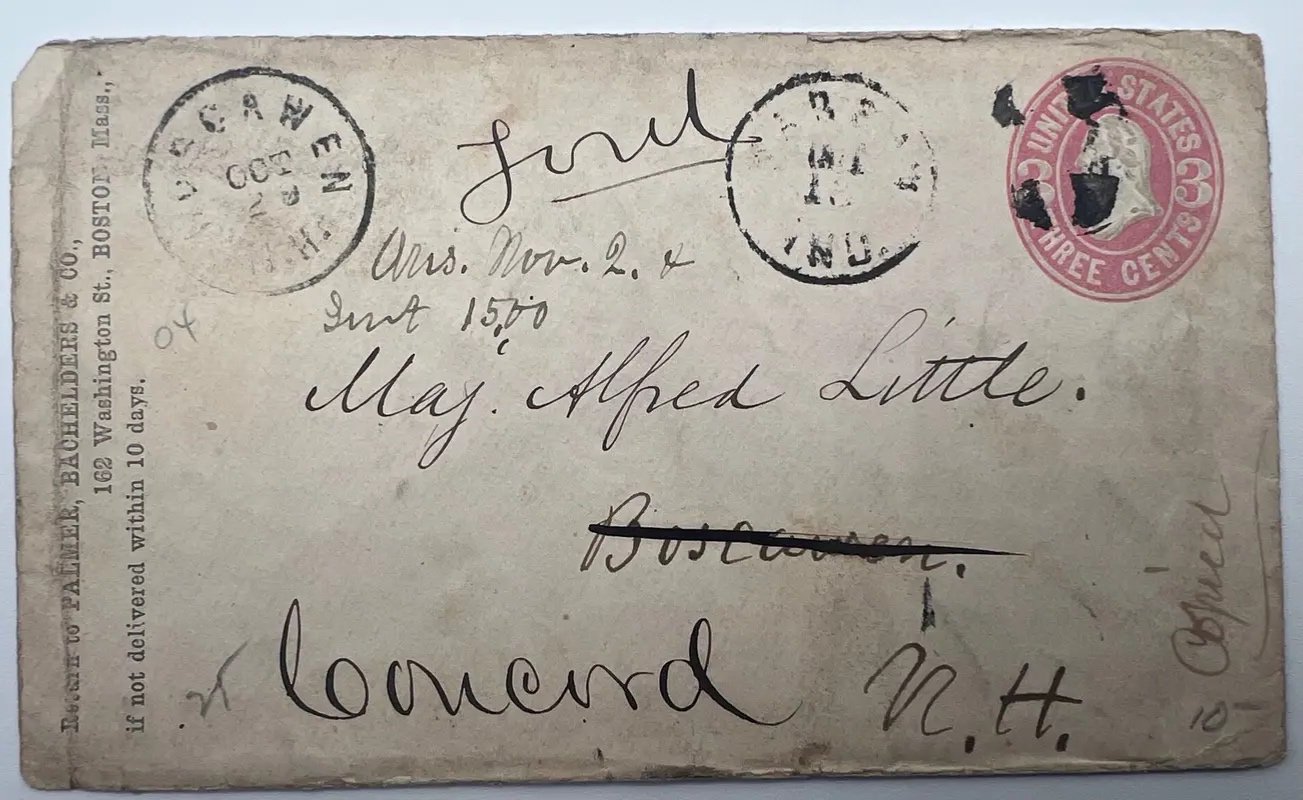 Return to PALMER, BACHELDERS & CO.,
162 Washington St., BOSTON, Mass.,
if not delivered within 10 days.
OSCAWEN
OCT
N.H.
Ford
IND.
UNITED STATES
3 3
THREE CENTS
Ans. Nov. 2. &
Sent 15,00
04
Maj. Alfred Little.
Boscawen.
Concord N. H.
Copied
10
25